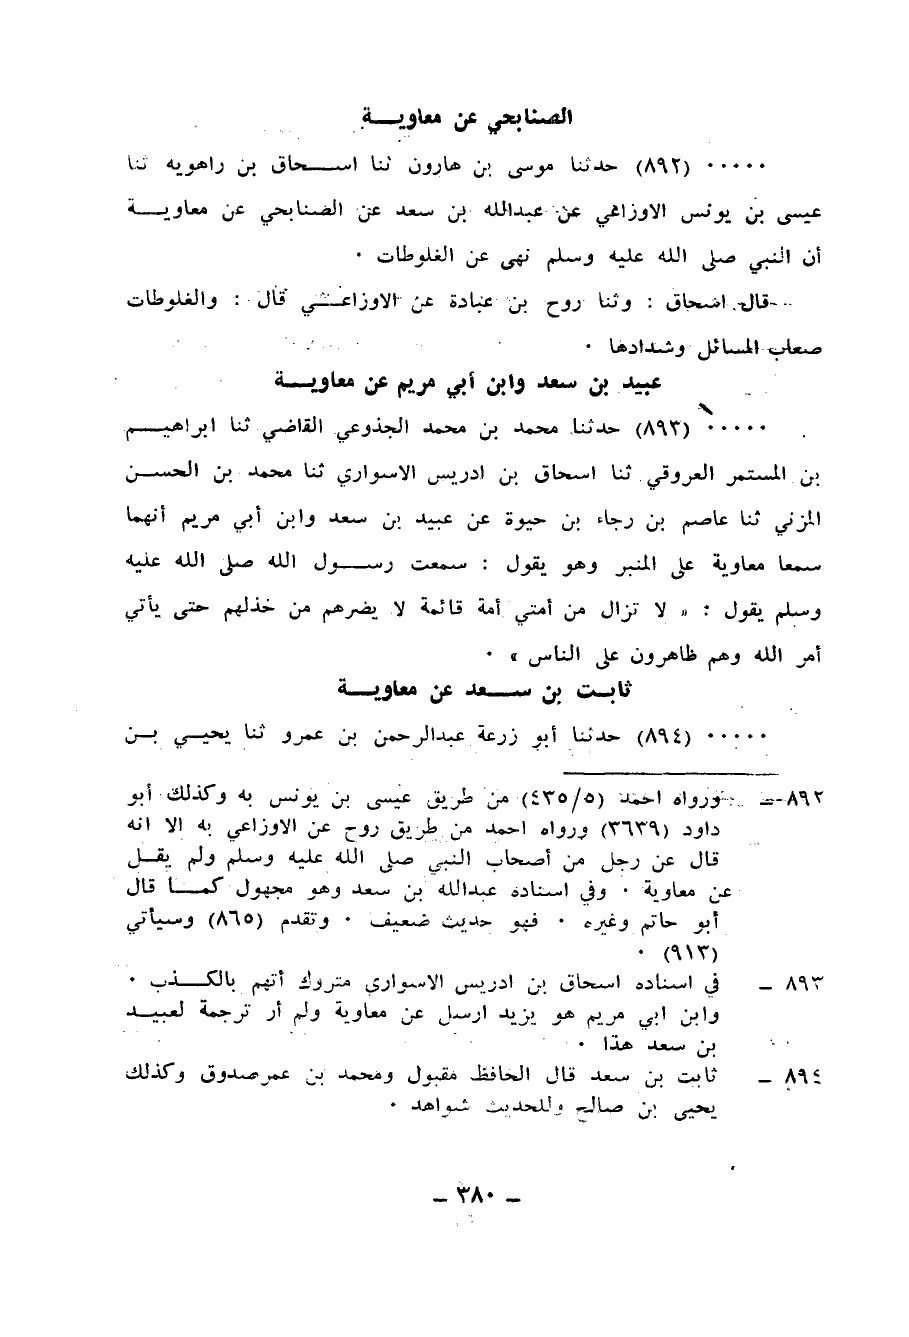 الصنابحي عن معاويـــة
٠٠٠٠٠ (٨٩٢) حدثنا موسى بن هارون ثنا اســـحاق بن راهويه ثنا
عيسى بن يونس الاوزاعي عن عبدالله بن سعد عن الصنابحي عن معاويـــة
أن النبي صلى الله عليه وسلم نهى عن الغلوطات ٠
قال اسحاق : وثنا روح بن عبادة عن الاوزاعـــي قال : والغلوطات
صعاب المسائل وشدادها ٠
عبيد بن سعد وابن أبي مريم عن معاويـــة
٠٠٠٠٠ (٨٩٣) حدثنا محمد بن محمد الجذوعي القاضي ثنا ابراهيـــم
بن المستمر العروقي ثنا اسحاق بن ادريس الاسواري ثنا محمد بن الحســـن
المزني ثنا عاصم بن رجاء بن حيوة عن عبيد بن سعد وابن أبي مريم أنهما
سمعا معاوية على المنبر وهو يقول : سمعت رســـول الله صلى الله عليه
وسلم يقول : « لا تزال من أمتي أمة قائمة لا يضرهم من خذلهم حتى يأتي
أمر الله وهم ظاهرون على الناس » ٠
ثابـت بن ســـعد عن معاويـــة
٠٠٠٠٠ (٨٩٤) حدثنا أبو زرعة عبدالرحمن بن عمرو ثنا يحيـــي بـــن
٨٩٢ ــ ورواه احمد (٤٣٥/٥) من طريق عيسى بن يونس به وكذلك أبو
داود (٣٦٣٩) ورواه احمد من طريق روح عن الاوزاعي به الا انه
قال عن رجل من أصحاب النبي صلى الله عليه وسلم ولم يقـــل
عن معاوية ٠ وفي اسناده عبدالله بن سعد وهو مجهول كمـــا قال
أبو حاتم وغيره ٠ فهو حديث ضعيف ٠ وتقدم (٨٦٥) وسيأتي
(٩١٣) ٠
٨٩٣ ــ في اسناده اسحاق بن ادريس الاسواري متروك أتهم بالكـــذب ٠
وابن ابي مريم هو يزيد ارسل عن معاوية ولم أر ترجمة لعبيـــد
بن سعد هذا ٠
٨٩٤ ــ ثابت بن سعد قال الحافظ مقبول ومحمد بن عمرصدوق وكذلك
يحيى بن صالح وللحديث شواهد ٠
ــ ٣٨٠ ــ